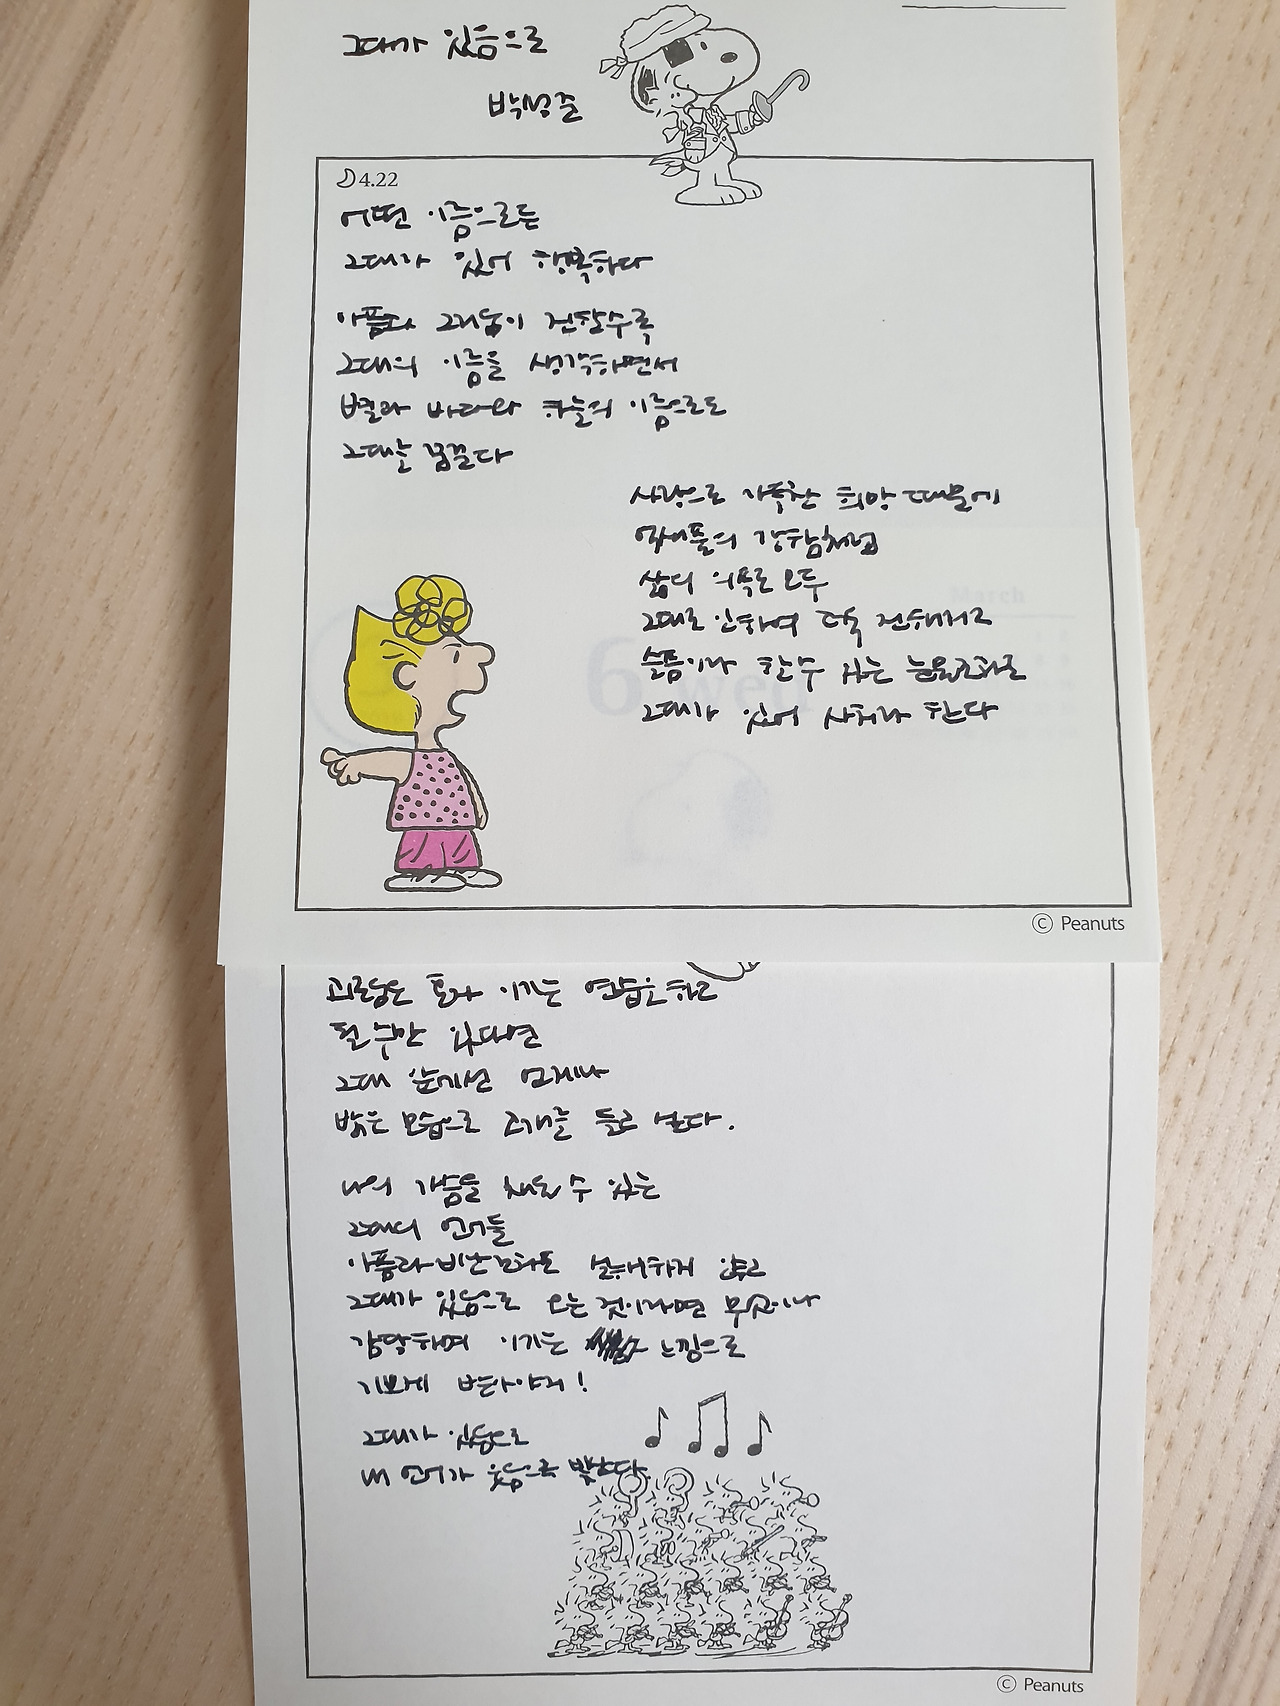 그대가 있음으로
박성준
4.22
어떤 이름으로든
그대가 있어 행복하다
아픔과 그리움이 진할수록
그대의 이름을 생각하면서
별과 바다와 하늘의 이름으로도
그대를 꿈꾼다
사랑으로 가득찬 희망 때문에
억새풀의 강함처럼
삶의 의욕도 모두
그대로 인하여 더욱 진해지고
슬픔이라 할 수 있는 눈물조차도
그대가 있어 사치라 한다
괴로움은 혼자 이기는 연습을 하고
될 수만 있다면
그대 앞에선 언제나
밝은 모습으로 고개를 들고 싶다.
나의 가슴을 채울 수 있는
그대의 언어들
아픔과 비난조차도 싫어하지 않고
그대가 있음으로 오는 것이라면 무엇이나
감당하며 이기는 느낌으로
기쁘게 받아야지!
그대가 있음으로
내 언어가 웃음으로 빛난다.
6 wed
March
© Peanuts
© Peanuts